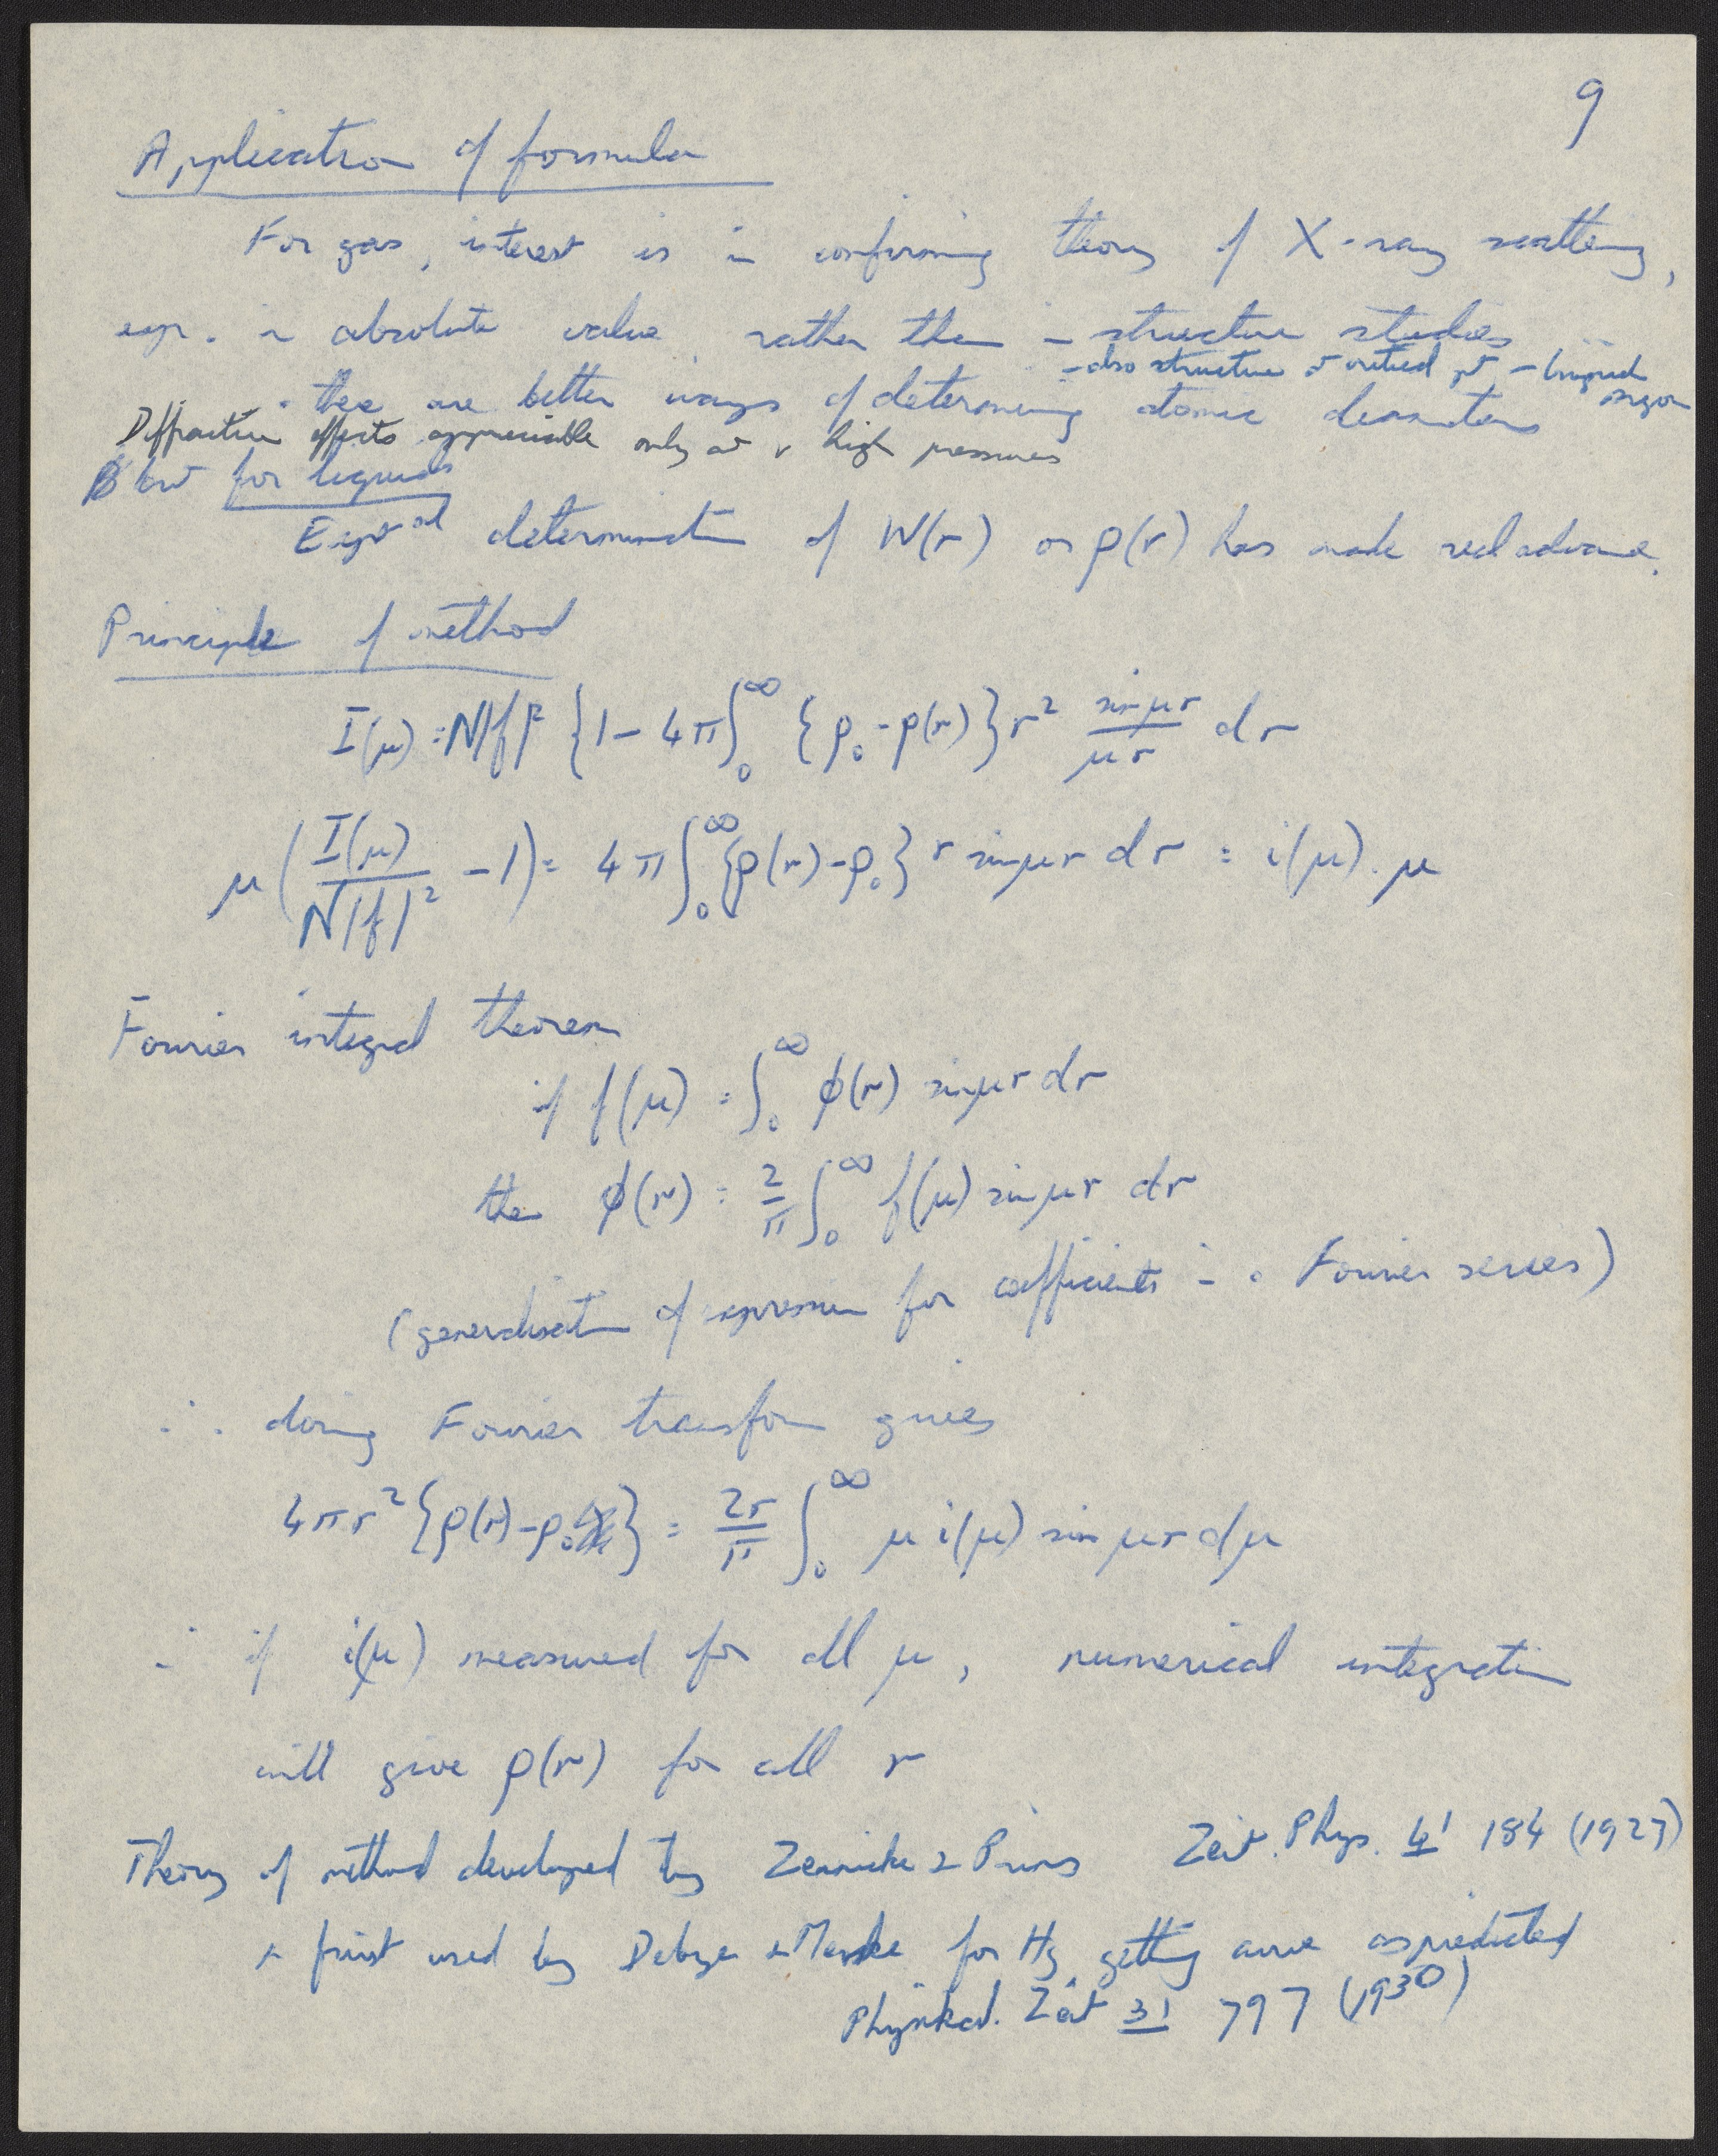 9
Application of formula
For gas, interest is in confirming theory of X-ray scattering,
esp. in absolute value, rather than in structure studies
- also structure at critical pt - liquid argon
∴ there are better ways of determining atomic diameters
Diffraction effects appreciable only at v high pressures
But for liquids
Exptal determination of W(r) or ρ(r) has made real advance.
Principle of method
I(μ) = N|f|² {1 - 4π∫₀^∞ {ρ₀ - ρ(r)} r² sin μr / μr dr
μ ( I(μ) / N|f|² - 1) = 4π∫₀^∞ {ρ(r) - ρ₀} r sin μr dr = i(μ). μ
Fourier integral theorem
if f(μ) = ∫₀^∞ φ(r) sin μr dr
then φ(r) = 2/π ∫₀^∞ f(μ) sin μr dr
(generalisation of expression for coefficients in a Fourier series)
∴ doing Fourier transform gives
4πr² {ρ(r) - ρ₀} = 2r/π ∫₀^∞ μ i(μ) sin μr dμ
∴ if i(μ) measured for all μ, numerical integration
will give ρ(r) for all r
Theory of method developed by Zernicke & Prins Zeit. Phys. 41 184 (1927)
& first used by Debye & Menke for Hg getting curve as predicted
Physikal. Zeit 31 797 (1930)